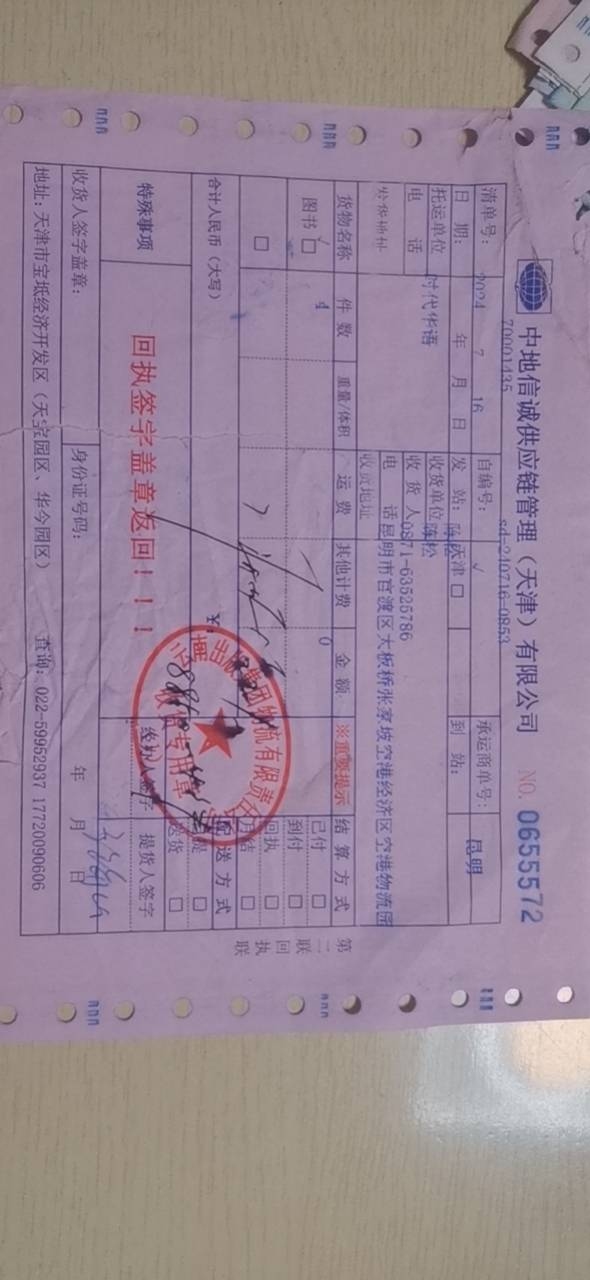 中地信诚供应链管理（天津）有限公司 NO. 0655572
70001435 sd-240716-0853
清单号： 自编号： 承运商单号：
2024 7 16 √ 昆明
日 期： 年 月 日 发 站： 天津 □ 到 站：
托运单位 时代华语 收货单位 陈松
电 话 收 货 人 0871-63525786
电 话 昆明市官渡区大板桥张家坡空港经济区空港物流园
收货地址
货物名称 件 数 重量/体积 运 费 其他计费 金 额 ※重要提示 结 算 方 式
图书 √ □ 4 0 已付 □
到付 □
□ 回执 □
月结 □
合计人民币（大写） 送 方 式
□
特殊事项 回执签字盖章返回！！！ 经办人签字 货 □
提货人签字
收货人签字盖章： 身份证号码： 年 月 日
地址：天津市宝坻经济开发区（天宝园区、华今园区） 查询：022-59952937 17720090606
第二联 回执联
出版集团物流有限责任
收货专用章